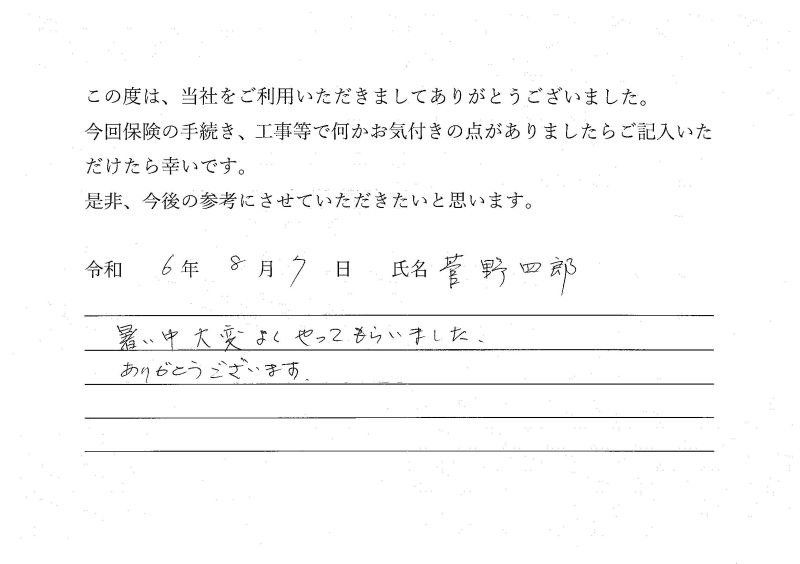 この度は、当社をご利用いただきましてありがとうございました。
今回保険の手続き、工事等で何かお気付きの点がありましたらご記入いた
だけたら幸いです。
是非、今後の参考にさせていただきたいと思います。
令和 6年 8月7日 氏名 菅野四郎
暑い中大変よくやってもらいました.
ありがとうございます.